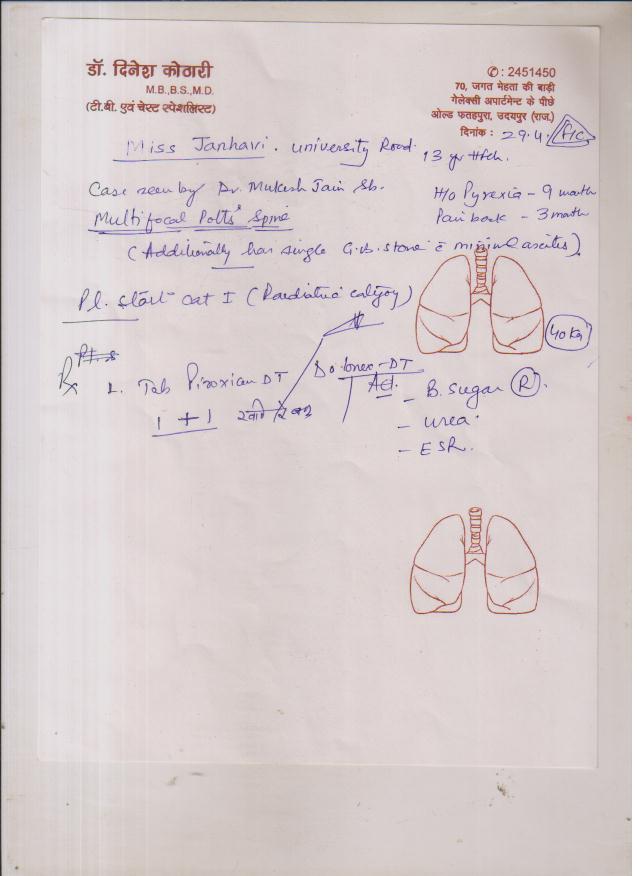 डॉ. दिनेश कोठारी
M.B.,B.S.,M.D.
(टी.बी. एवं चेस्ट स्पेशलिस्ट)
✆ : 2451450
70, जगत मेहता की बाड़ी
गेलेक्सी अपार्टमेन्ट के पीछे
ओल्ड फतहपुरा, उदयपुर (राज.)
दिनांक : 29.4.
Miss Janhavi. University Road. 13 yr
Case seen by Dr. Mukesh Jain Sb.
H/o Pyrexia - 9 month
Multifocal Potts' Spine
Pain back - 3 month
(Additionally has single G.B. stone c minimal ascites).
Pl. start cat I (Paediatric category)
40 Kg
Rx
1. Tab Piroxicam DT
Dolonex-DT
1 + 1
Ad.
- B. Sugar (R)
- Urea
- ESR.